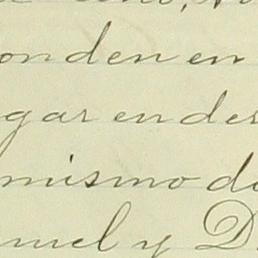 onden en
gar ender
mismo di
muel y D